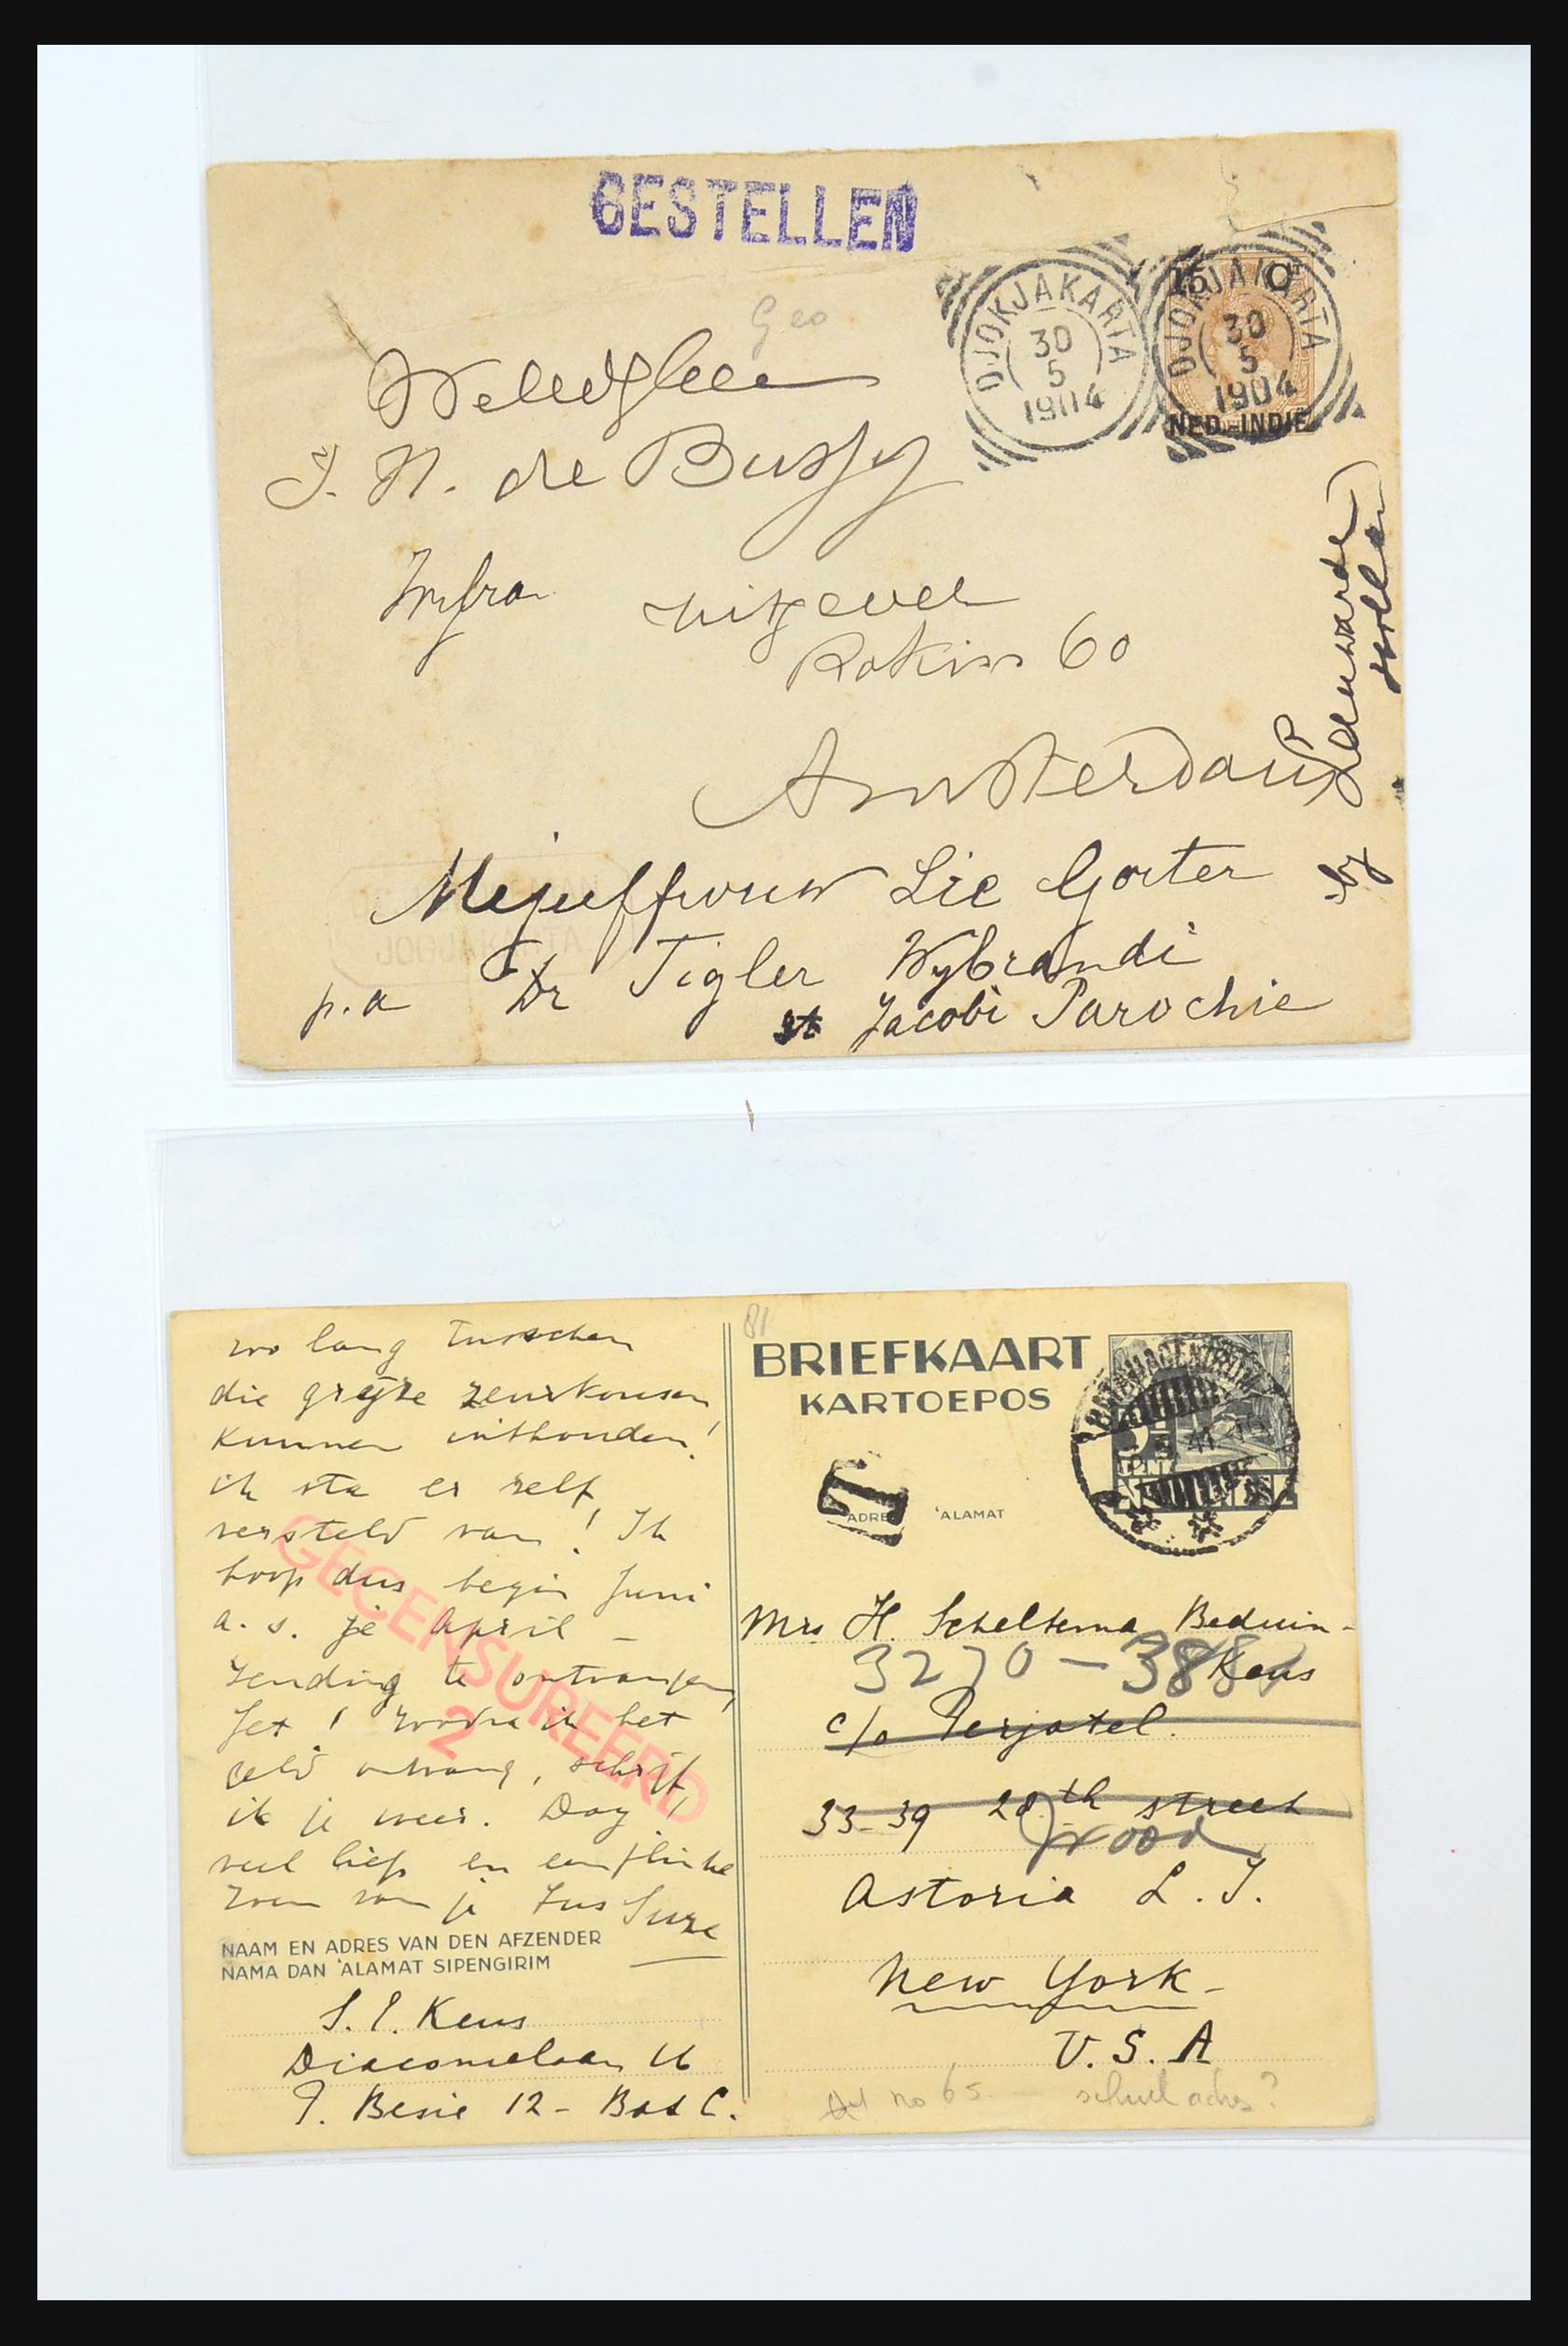 GESTELLEN
Geo
DJOKJAKARTA
30
5
1904
DJOKJAKARTA
30
5
1904
15 Ct
NED.-INDIË
J. H. de Bussy
uitgever
Rokin 60
Amsterdam
Mejuffrouw Lie Gorter
p.a Dr Tigler Wybrandi
st Jacobi Parochie
by Leeuwarden
Holland
81
BRIEFKAART
KARTOEPOS
BATAVIACENTRUM
T
ADRES 'ALAMAT
zoo lang tusschen
die grijze zeurkousen
kunnen uithouden!
ik sta er zelf
versteld van! Ik
hoop dus begin Juni
a. s. je April –
zending te ontvangen,
Jet! zoodra ik het
geld ontvang, schrijf
ik je weer. Dag,
veel liefs en een flinke
zoen van je zus Suze
GECENSUREERD
2
NAAM EN ADRES VAN DEN AFZENDER
NAMA DAN 'ALAMAT SIPENGIRIM
S. P. Keus
Diaconielaan 16
P. Besie 12 – Bat C.
Mrs H. Scheltema Beduin-
Keus
3270 – 38
c/o Perjatel.
33-39 28th street
Astoria L. I.
New York –
U. S. A
no 65 schuiladres?